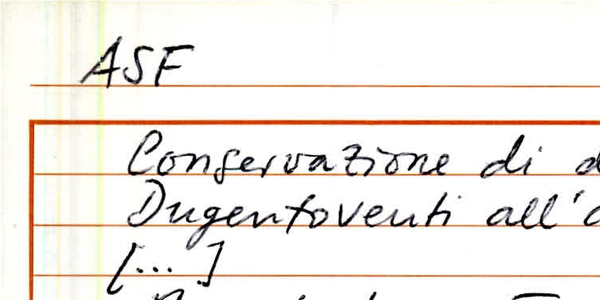 ASF
Conservazione di
Dugentoventi all'
[...]